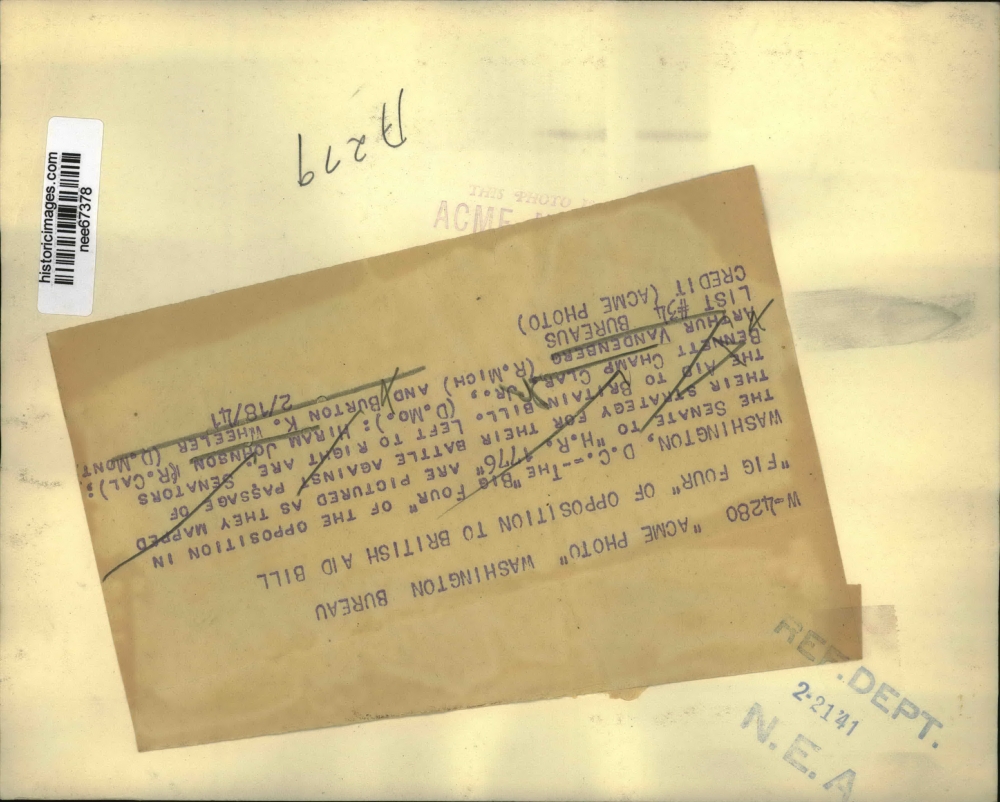 W-4280 "ACME PHOTO" WASHINGTON BUREAU
"FIG FOUR" OF OPPOSITION TO BRITISH AID BILL
WASHINGTON, D.C.--THE "BIG FOUR" OF THE OPPOSITION IN
THE SENATE TO "H.R. 1776" ARE PICTURED AS THEY MAPPED
THEIR STRATEGY FOR THEIR BATTLE AGAINST PASSAGE OF
THE AID TO BRITAIN BILL. LEFT TO RIGHT ARE: SENATORS
BENNETT CHAMP CLARK, JR., (D.MO.); HIRAM JOHNSON (R.CAL);
ARTHUR VANDENBERG (R.MICH) AND BURTON K. WHEELER (D.MONT
LIST #34 BUREAUS 2/18/41
CREDIT (ACME PHOTO)
A279
THIS PHOTO
ACME
historicimages.com
nee67378
REF. DEPT.
2-21'41
N.E.A